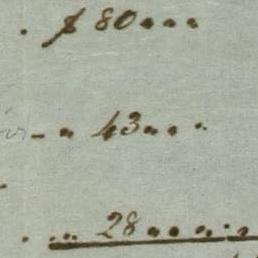 . $ 80...
- . 43...
. ... 28.....